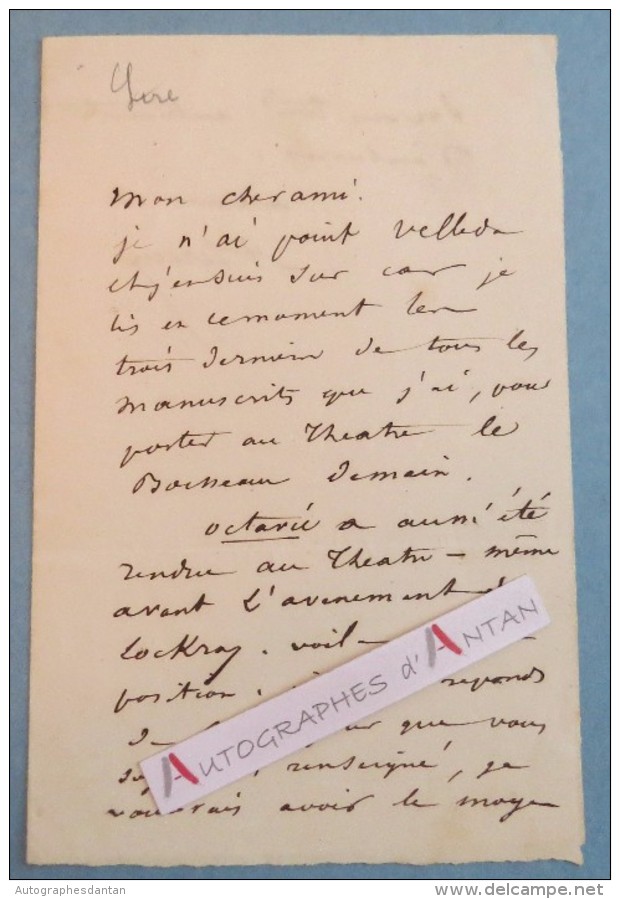 Lire
mon cher ami.
je n'ai point velleda
et j'en suis sur car je
lis en ce moment les
trois dernier de tous les
manuscrits que j'ai, pour
porter au Theatre le
demain.
octavie a aussi été
rendu au Theatre - même
avant l'avenement
Lockroy. voil
position. reponds
que vous
renseigné, je
voudrais avoir le moyen
AUTOGRAPHES d'ANTAN
Autographesdantan
delcampe.net